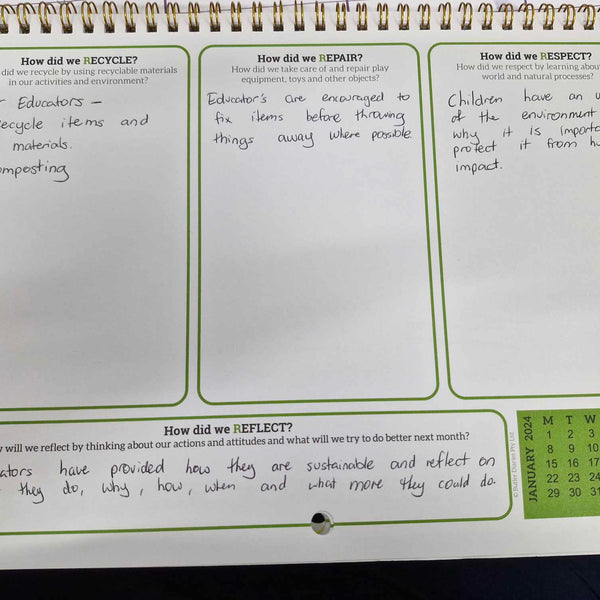 How did we RECYCLE?
did we recycle by using recyclable materials
in our activities and environment?
Educators -
recycle items and
materials.
omposting
How did we REPAIR?
How did we take care of and repair play
equipment, toys and other objects?
Educator's are encouraged to
fix items before throwing
things away where possible.
How did we RESPECT?
How did we respect by learning about
world and natural processes?
Children have an u
of the environment
why it is importa
protect it from hu
impact.
How did we REFLECT?
will we reflect by thinking about our actions and attitudes and what will we try to do better next month?
ators have provided how they are sustainable and reflect on
they do, why, how, when and what more they could do.
© Butler Diaries Pty Ltd
JANUARY 2024
M T W
1 2 3
8 9 10
15 16 17
22 23 24
29 30 31